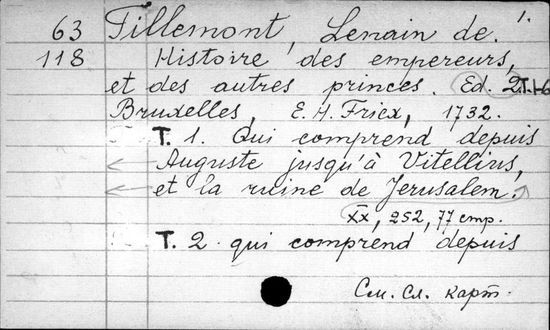 1.
63 Tillemont, Lenain de.
118 Histoire des empereurs,
et des autres princes. Ed. 2. T. 1-6
Bruxelles, E. H. Fricx, 1732.
T. 1. Qui comprend depuis
Auguste jusqu'à Vitellius,
et la ruine de Jerusalem.
XX, 252, 77 стр.
T. 2. qui comprend depuis
См. сл. карт.